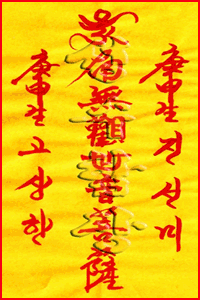 庚申生 진선미
南無觀世音菩薩
庚申生 고상한